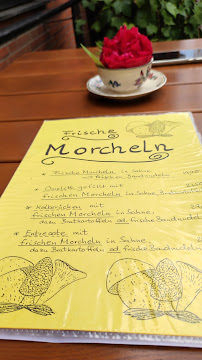 Frische
Morcheln
* Frische Morcheln in Sahne
mit frischen Bandnudeln
* Omelette gefüllt mit
frischen Morcheln in Sahne
* Kalbsrücken mit
frischen Morcheln in Sahne
dazu Bratkartoffeln od. frische Bandnudeln
* Entrecote mit
frischen Morcheln in Sahne
dazu Bratkartoffeln od. frische Bandnudeln